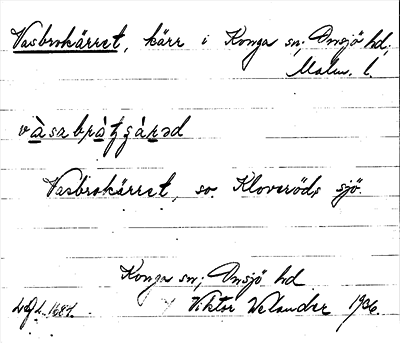 Vasbrokärret, kärr i Konga sn; Onsjö hd,
Malm. l.
Vasbrokärret, so. Kloveröds sjö.
Konga sn; Onsjö hd
Viktor Welander 1936.